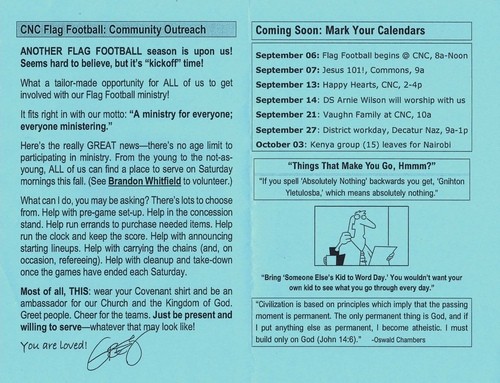 CNC Flag Football: Community Outreach
ANOTHER FLAG FOOTBALL season is upon us!
Seems hard to believe, but it's "kickoff" time!
What a tailor-made opportunity for ALL of us to get
involved with our Flag Football ministry!
It fits right in with our motto: "A ministry for everyone;
everyone ministering."
Here's the really GREAT news—there's no age limit to
participating in ministry. From the young to the not-as-
young, ALL of us can find a place to serve on Saturday
mornings this fall. (See Brandon Whitfield to volunteer.)
What can I do, you may be asking? There's lots to choose
from. Help with pre-game set-up. Help in the concession
stand. Help run errands to purchase needed items. Help
run the clock and keep the score. Help with announcing
starting lineups. Help with carrying the chains (and, on
occasion, refereeing). Help with cleanup and take-down
once the games have ended each Saturday.
Most of all, THIS: wear your Covenant shirt and be an
ambassador for our Church and the Kingdom of God.
Greet people. Cheer for the teams. Just be present and
willing to serve—whatever that may look like!
You are Loved!
Coming Soon: Mark Your Calendars
September 06: Flag Football begins @ CNC, 8a-Noon
September 07: Jesus 101!, Commons, 9a
September 13: Happy Hearts, CNC, 2-4p
September 14: DS Arnie Wilson will worship with us
September 21: Vaughn Family at CNC, 10a
September 27: District workday, Decatur Naz, 9a-1p
October 03: Kenya group (15) leaves for Nairobi
"Things That Make You Go, Hmmm?"
"If you spell 'Absolutely Nothing' backwards you get, 'Gnihton
Yletulosba,' which means absolutely nothing."
"Bring 'Someone Else's Kid to Word Day.' You wouldn't want your
own kid to see what you go through every day."
"Civilization is based on principles which imply that the passing
moment is permanent. The only permanent thing is God, and if
I put anything else as permanent, I become atheistic. I must
build only on God (John 14:6)." -Oswald Chambers